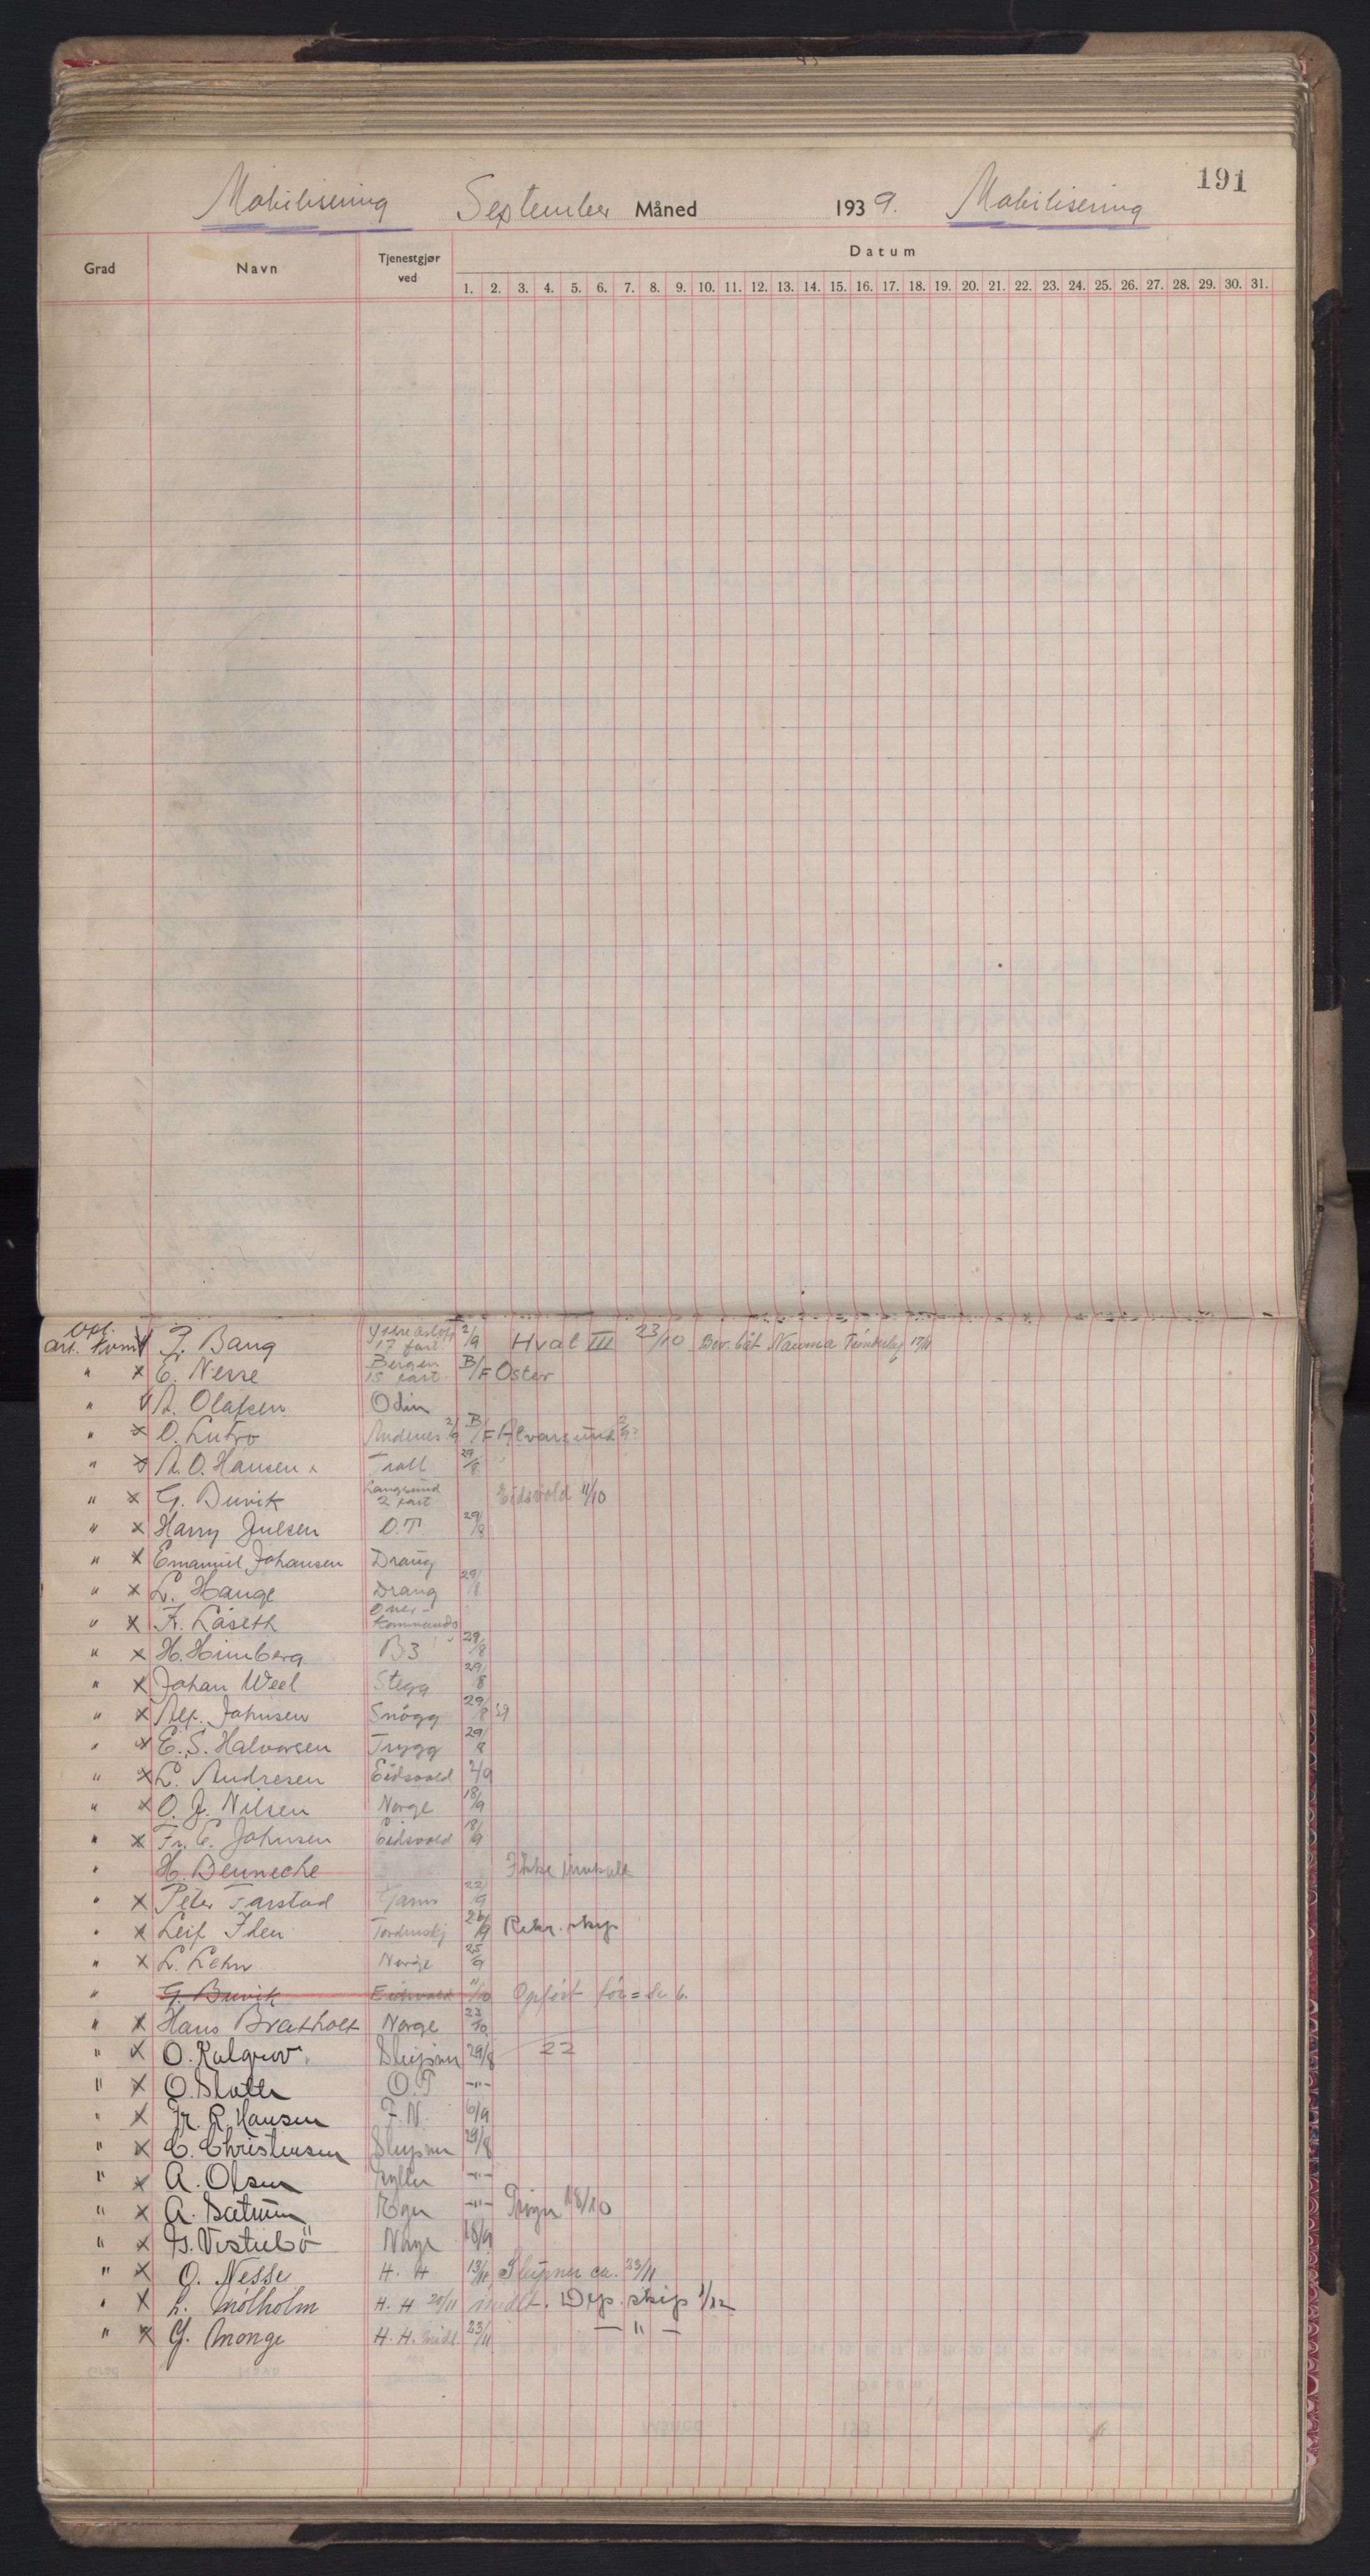 191
Mobilisering September Måned 1939. Mobilisering
Grad Navn Tjenestgjør ved Datum
1. 2. 3. 4. 5. 6. 7. 8. 9. 10. 11. 12. 13. 14. 15. 16. 17. 18. 19. 20. 21. 22. 23. 24. 25. 26. 27. 28. 29. 30. 31.
17 fart. 2/9 Hval III 23/10 Bev. båt 17/11
" x E. Nesse Bergen 15 fart B/F Oster
" A. Olafsen Odin
" x O. Lutro Andenes 2/9 B/F Alversund
" x A. O. Hansen x Troll 29/8
" x G. Buvik Langesund 2 fart Eidsvold 11/10
" x Harry Julsen O.T. 29/8
" x Emanuel Johansen Draug
" x L. Hauge Draug 29/8
" x Fr. Låseth Over-kommando
" x H. Himberg B3 29/8
" x Johan Weel Stegg 29/8
" x Alf. Johnsen Snögg 29/8
" x E. S. Halvorsen Trygg 29/8
" x L. Andresen Eidsvold 2/9
" x O. J. Nilsen Norge 18/9
" x Fr. E. Johnsen Eidsvold 18/9
" H. Bennecke Ikke innkalt
" x Peter Tarstad Garm 22/9
" x Leif Iden Tordenskj 26/9 Rekr. skip
" x L. Lehn Norge 25/9
" G. Buvik Eidsvold 11/10 Opført før =
" x Hans Bratholt Norge 23/10
" x O. Kalgrov. Sleipner 29/8 22
" x O. Slatle O.T -"-
" x Fr. R. Hansen F.N. 6/9
" x C. Christensen Sleipner 29/8
" x A. Olsen Kjell -"-
" x A. Sætrum -"- 18/10
" x Norge 18/9
" x O. Nesse H. H. 13/11 Sleipner ca. 23/11
" x L. Mølholm H. H. 20/11 midl. Dep. skip 1/12
" x G. Monge H. H. midl 23/11 — " —